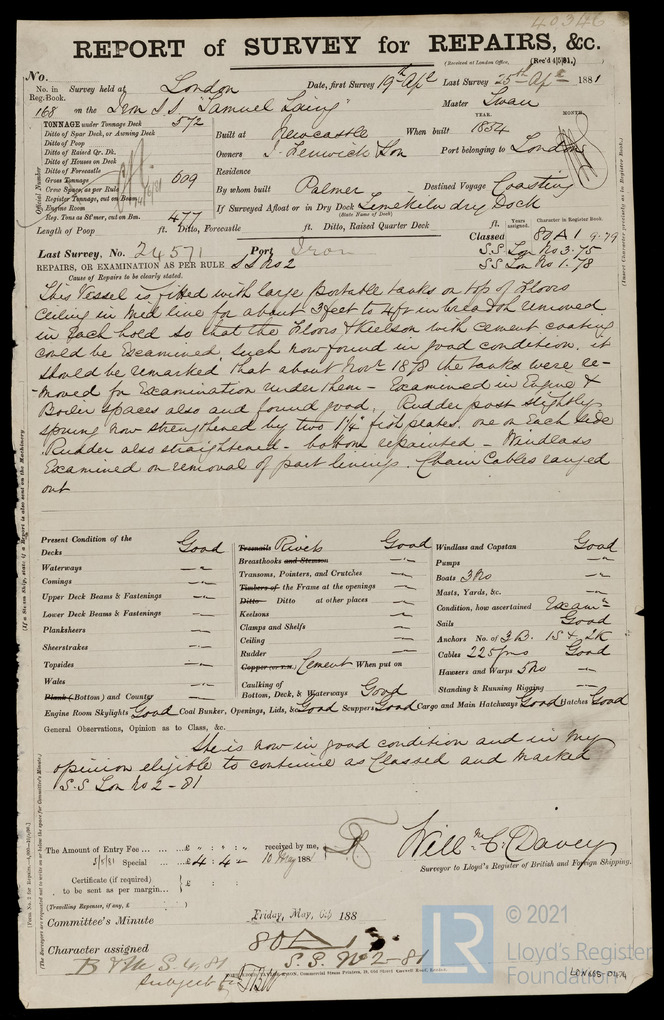 40346
REPORT of SURVEY for REPAIRS, &c.
(Received at London Office, (Rec'd 4|5|81.)
No.
No. in Reg. Book. Survey held at London Date, first Survey 19th Apl Last Survey 25th Apl 1881
168 on the Iron S.S. "Samuel Laing" Master Swan
TONNAGE under Tonnage Deck 572
Ditto of Spar Deck, or Awning Deck
Ditto of Poop
Ditto of Raised Qr. Dk.
Ditto of Houses on Deck
Ditto of Forecastle
Gross Tonnage 609
Crew Space, as per Rule
Register Tonnage, cut on Beam
Engine Room
Reg. Tons as St'mer, cut on Bm. 477
Official Number
Built at Newcastle When built YEAR. 1854 MONTH.
Owners J. Fenwick & Son Port belonging to London
Residence
By whom built Palmer Destined Voyage Coasting
If Surveyed Afloat or in Dry Dock Limekiln dry Dock
(State Name of Dock)
Length of Poop ft. Ditto, Forecastle ft. Ditto, Raised Quarter Deck ft.
Years assigned. Character in Register Book.
Classed 80 A 1 9.79
S.S. Lon No 3.75
S.S. Lon No 1.78
Last Survey, No. 24571 Port Iron
REPAIRS, OR EXAMINATION AS PER RULE SS No 2
Cause of Repairs to be clearly stated.
This Vessel is fitted with large portable tanks on top of Floors
Ceiling in mid line for about 3 feet to 4 ft in breadth removed
in each hold so that the Floors & Keelson with cement coating
could be Examined, such now found in good condition. it
should be remarked that about Novr 1878 the tanks were re-
-moved for Examination under them - Examined in Engine &
Boiler spaces also and found good. Rudder post slightly
sprung now strengthened by two 1¼" fish plates, one on Each side
Rudder also straightened - bottom repainted - Windlass
Examined on removal of part linings. Chain Cables ranged
out
Present Condition of the
Decks Good
Waterways "
Comings "
Upper Deck Beams & Fastenings "
Lower Deck Beams & Fastenings "
Planksheers "
Sheerstrakes "
Topsides "
Wales "
Plank (Bottom) and Counter "
Treenails Rivets Good
Breasthooks and Stemson "
Transoms, Pointers, and Crutches "
Timbers of the Frame at the openings "
Ditto Ditto at other places "
Keelsons "
Clamps and Shelfs "
Ceiling "
Rudder "
Copper (or Y.M.) Cement When put on
Caulking of Bottom, Deck, & Waterways Good
Windlass and Capstan Good
Pumps "
Boats 3 No "
Masts, Yards, &c. "
Condition, how ascertained Exam'n
Sails Good
Anchors No. of 3 B. 1 S & 2 K
Cables 225 fms Good
Hawsers and Warps 5 No "
Standing & Running Rigging "
Engine Room Skylights Good Coal Bunker, Openings, Lids, &c Good Scuppers Good Cargo and Main Hatchways Good Hatches Good
General Observations, Opinion as to Class, &c.
She is now in good condition and in my
opinion eligible to continue as Classed and marked
S.S Lon No 2 - 81
The Amount of Entry Fee ... £ : : received by me,
3/5/81 Special ... £ 4 : 4 - 10 May 188
Certificate (if required) £ :
to be sent as per margin...
(Travelling Expenses, if any, £ )
Willm C. Davey
Surveyor to Lloyd's Register of British and Foreign Shipping.
Committee's Minute Friday, May, 6th 188
Character assigned 80 A 1
S.S. No 2 - 81
B & M S. 4. 81
Subject
(If a Steam Ship, state if a Report is also sent on the Machinery
(Insert Character precisely as in Register Book.)
(The Surveyors are requested not to write on or below the space for Committee's Minute.)
© 2021
LR
Lloyd's Register
Foundation